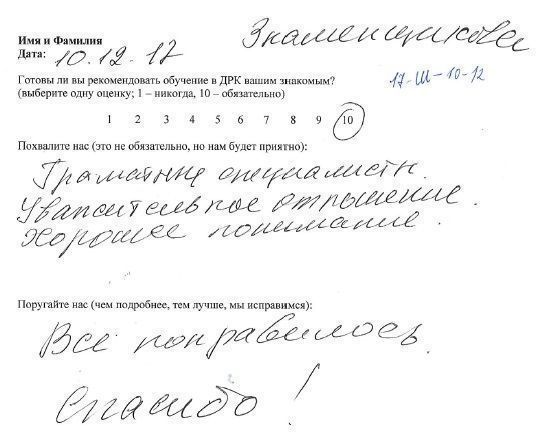 Имя и Фамилия Знаменщикова
Дата: 10.12.17
Готовы ли вы рекомендовать обучение в ДРК вашим знакомым?
(выберите одну оценку; 1 – никогда, 10 – обязательно)
17-Ш-10-12
1 2 3 4 5 6 7 8 9 10
Похвалите нас (это не обязательно, но нам будет приятно):
Грамотные специалисты.
Уважительное отношение.
Хорошее понимание.
Поругайте нас (чем подробнее, тем лучше, мы исправимся):
Всё понравилось.
Спасибо!